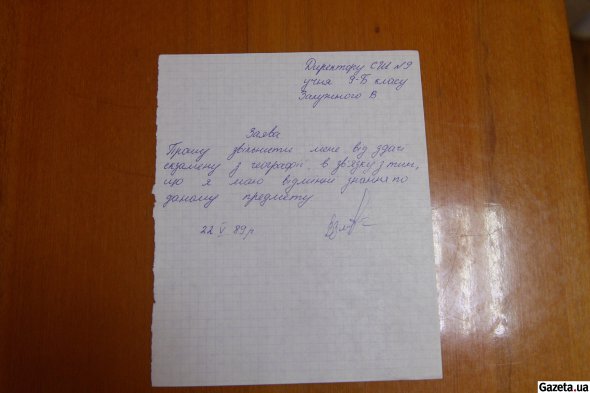 Директору СШ №9
учня 9-Б класу
Залужного В.
Заява
Прошу звільнити мене від здачі
екзамену з географії, в зв'язку з тим,
що я маю відмінні знання по
даному предмету
22 V 89 р
Gazeta.ua